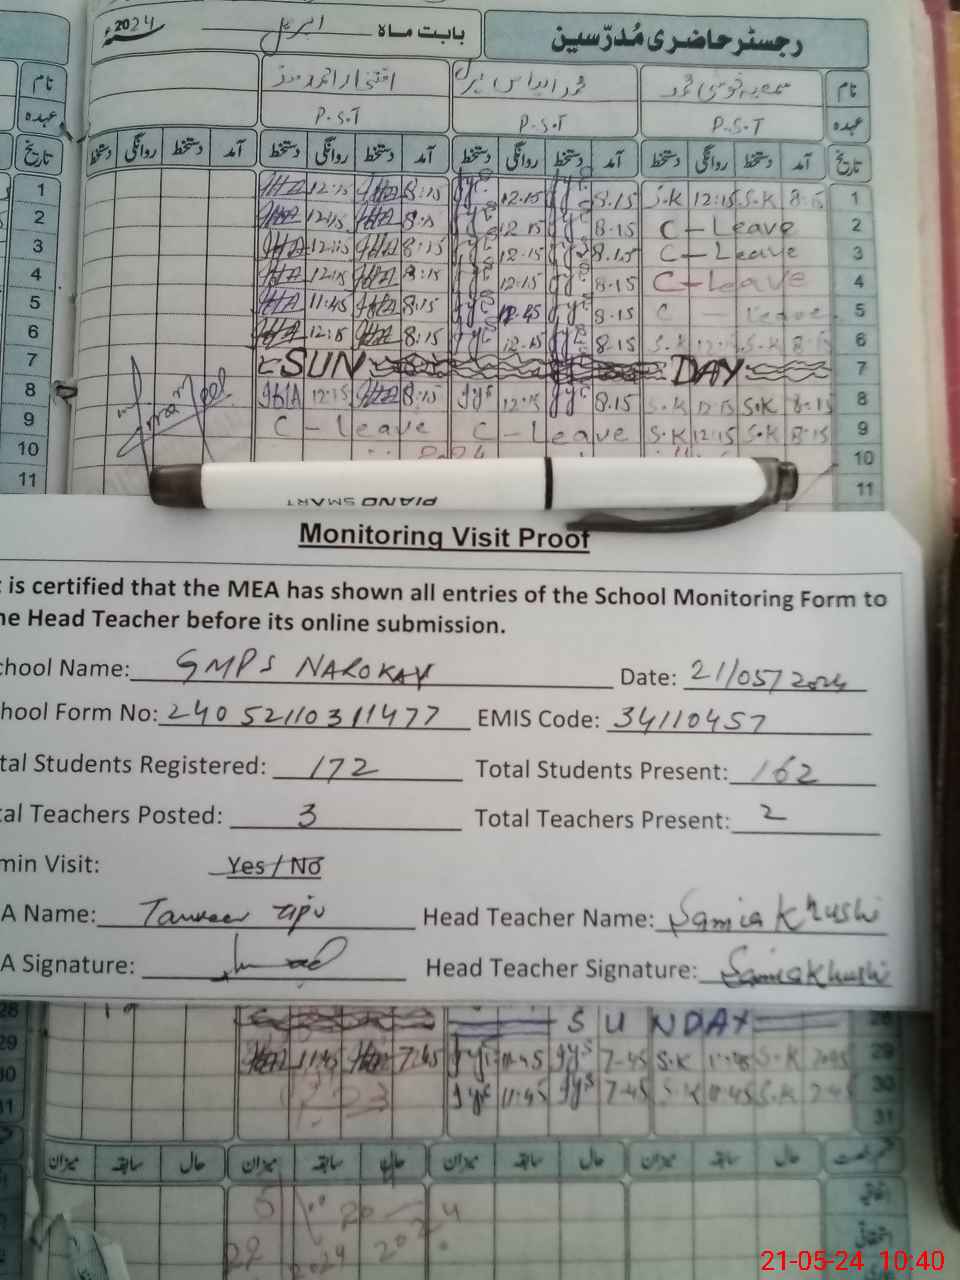 رجسٹر حاضری مُدرّسین
بابت ماہ اپریل 2024
نام
نام
عہدہ P.S.T P.S.T P.S.T
عہدہ
تاریخ آمد دستخط روانگی دستخط آمد دستخط روانگی دستخط آمد دستخط روانگی دستخط آمد دستخط روانگی دستخط تاریخ
1 12:15 8:15 12.15 8.15 S.K 12:15 S.K 8:15 1
2 8:15 12.15 8.15 C - Leave 2
3 12:15 8:15 12.15 8.15 C - Leave 3
4 12:15 8:15 12.15 8.15 C - Leave 4
5 11:45 8:15 8.15 C - Leave 5
6 12:15 8:15 12.15 8.15 S.K 12:15 S.K 8:15 6
7 SUN DAY 7
8 12:15 8:15 12:15 8.15 S.K 12:15 S.K 8:15 8
9 C - Leave C - Leave S.K 12:15 S.K 8:15 9
10 10
11 11
PIANO SMART
Monitoring Visit Proof
is certified that the MEA has shown all entries of the School Monitoring Form to
he Head Teacher before its online submission.
chool Name: GMPS NAROKAY Date: 21/05/2024
hool Form No: 24052110311477 EMIS Code: 34110457
tal Students Registered: 172 Total Students Present: 162
al Teachers Posted: 3 Total Teachers Present: 2
min Visit: Yes / No
A Name: Tanveer Tipu Head Teacher Name: Samia Khushi
A Signature: Head Teacher Signature: Samia Khushi
28 SUNDAY 28
29 11:45 7:45 11:45 7-45 S.K 11:45 S.K 7:45 29
30 11:45 7-45 S.K 11:45 S.K 7:45 30
31 31
میزان سابقہ حال میزان سابقہ حال میزان سابقہ حال میزان سابقہ حال
اتفاقیہ
5
22 2024
21-05-24 10:40